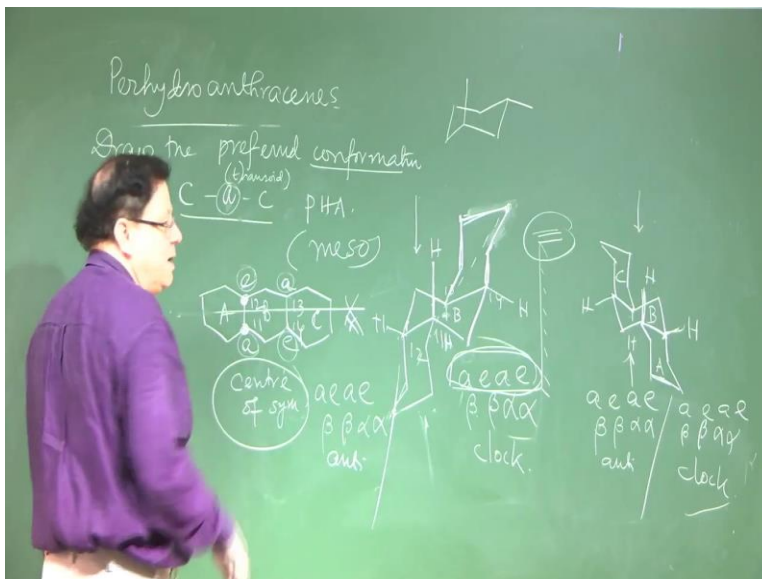 Perhydroanthracenes
Draw the preferred conformatn
(transoid)
C-a-C PHA.
(meso)
e a
A 12 B 13 C
11 14
a e
Centre
of sym.
a e a e
β β α α
anti
H
B 14 H
H 11 H
12
a e a e
β β α α
clock.
C H
H B
H
H
A
a e a e
β β α α
anti
a e a e
β β α α
clock